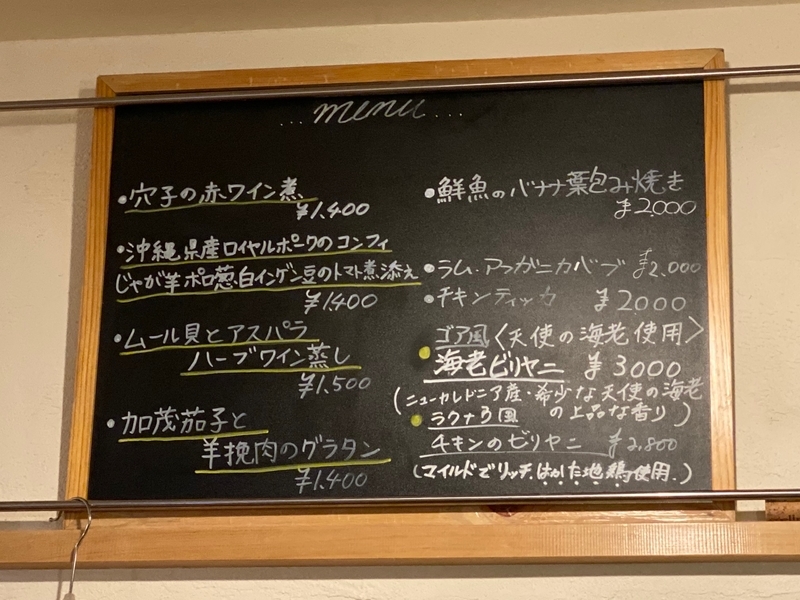 ...menu...
•穴子の赤ワイン煮
¥1.400
•沖縄県産ロイヤルポークのコンフィ
じゃが芋ポロ葱.白インゲン豆のトマト煮添え
¥1.400
•ムール貝とアスパラ
ハーブワイン蒸し
¥1.500
•加茂茄子と
羊挽肉のグラタン
¥1.400
•鮮魚のバナナ葉包み焼き
¥2.000
•ラム.アフガニカバブ ¥2.000
•チキンティッカ ¥2000
ゴア風〈天使の海老使用〉
•海老ビリヤニ ¥3000
(ニューカレドニア産・希少な天使の海老
の上品な香り)
•ラクナウ風
チキンのビリヤニ ¥2.800
(マイルドでリッチ.はかた地鶏使用.)